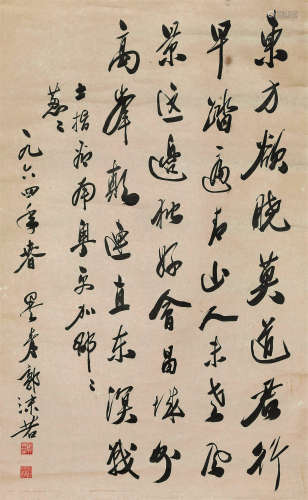 東方欲曉莫道君行
早踏遍青山人未老風
景這邊独好會昌城外
高峯颠連直東溟戰
士指看南粤更加郁々
葱々
一九六四年春 郭沫若